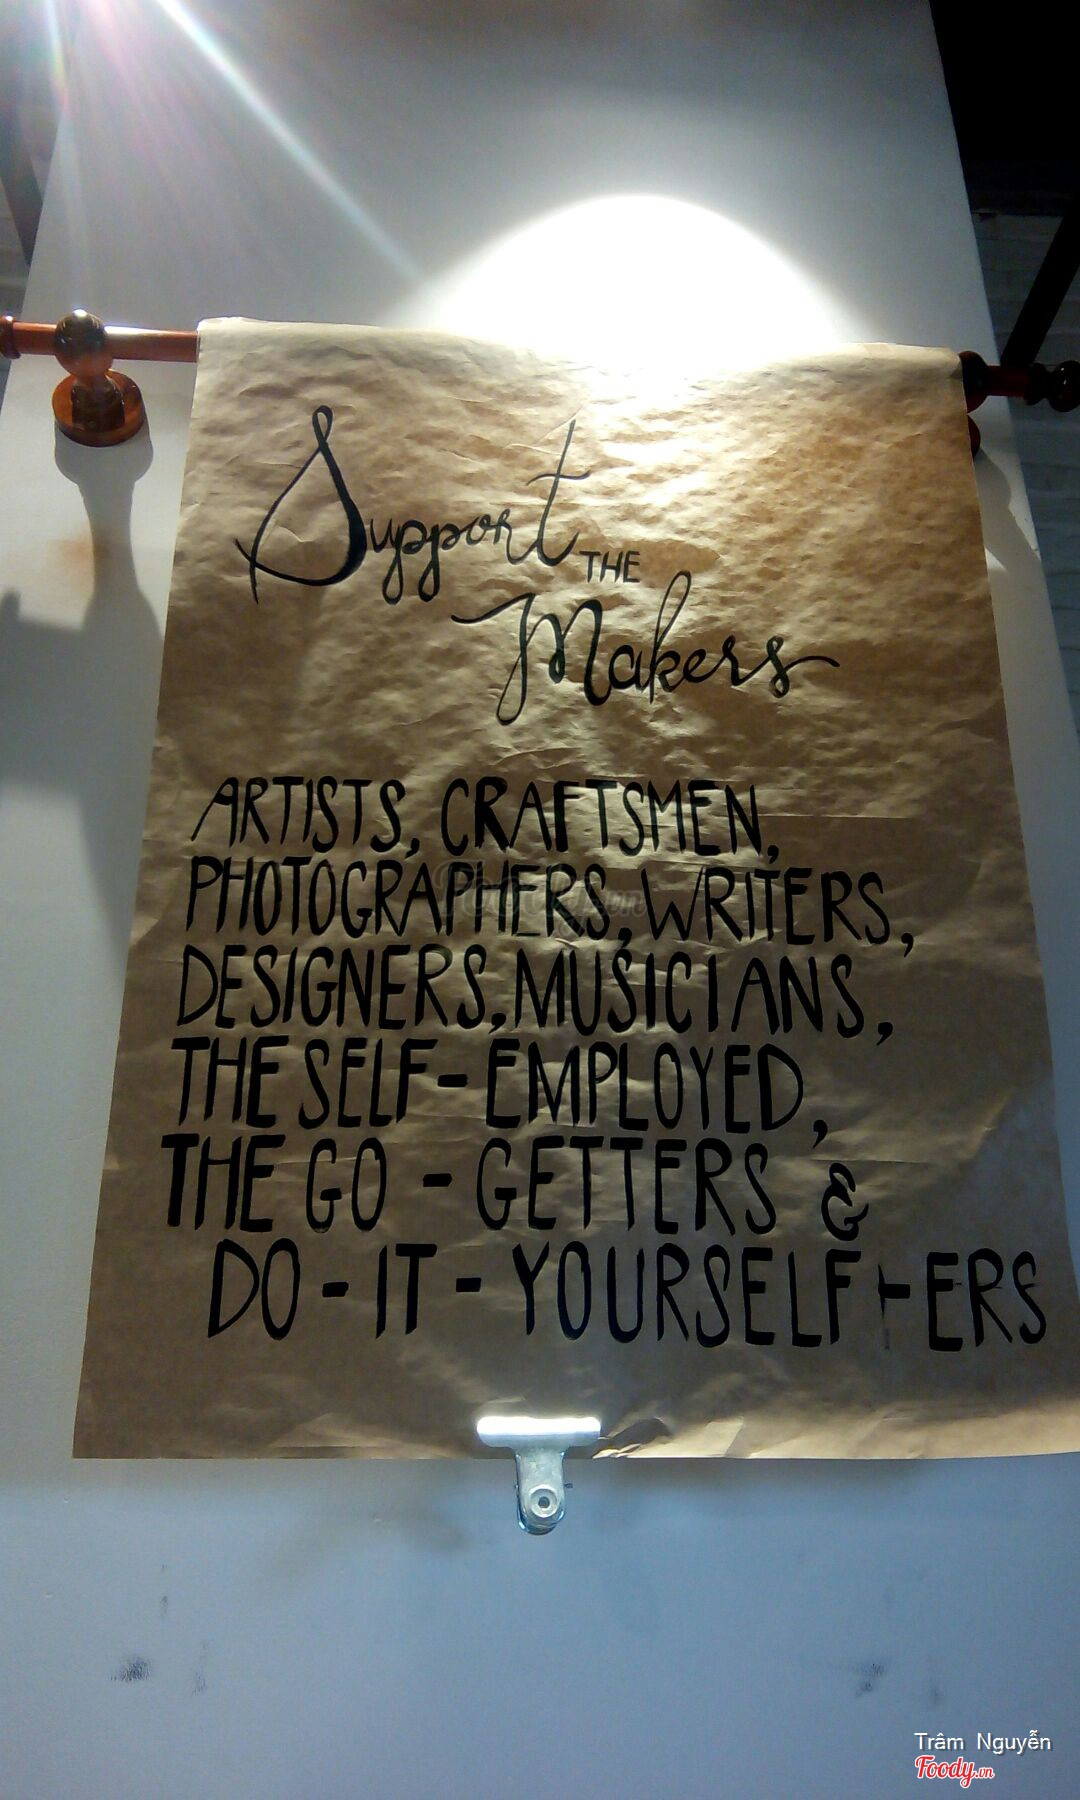 Support THE
Makers
ARTISTS, CRAFTSMEN,
PHOTOGRAPHERS, WRITERS,
DESIGNERS, MUSICIANS,
THE SELF-EMPLOYED,
THE GO-GETTERS &
DO-IT-YOURSELF-ERS
Trâm Nguyễn
Foody.vn